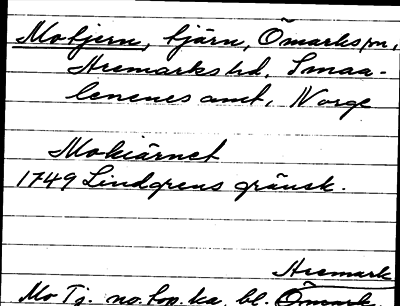 Motjern, tjärn, Ömarks sn,
Aremarks hd. Smaa-
lenenes amt, Norge
Mokiärnet
1749 Lindgrens gränsk.
Aremark
Mo Tj. no. top. ka. bl. Ömark